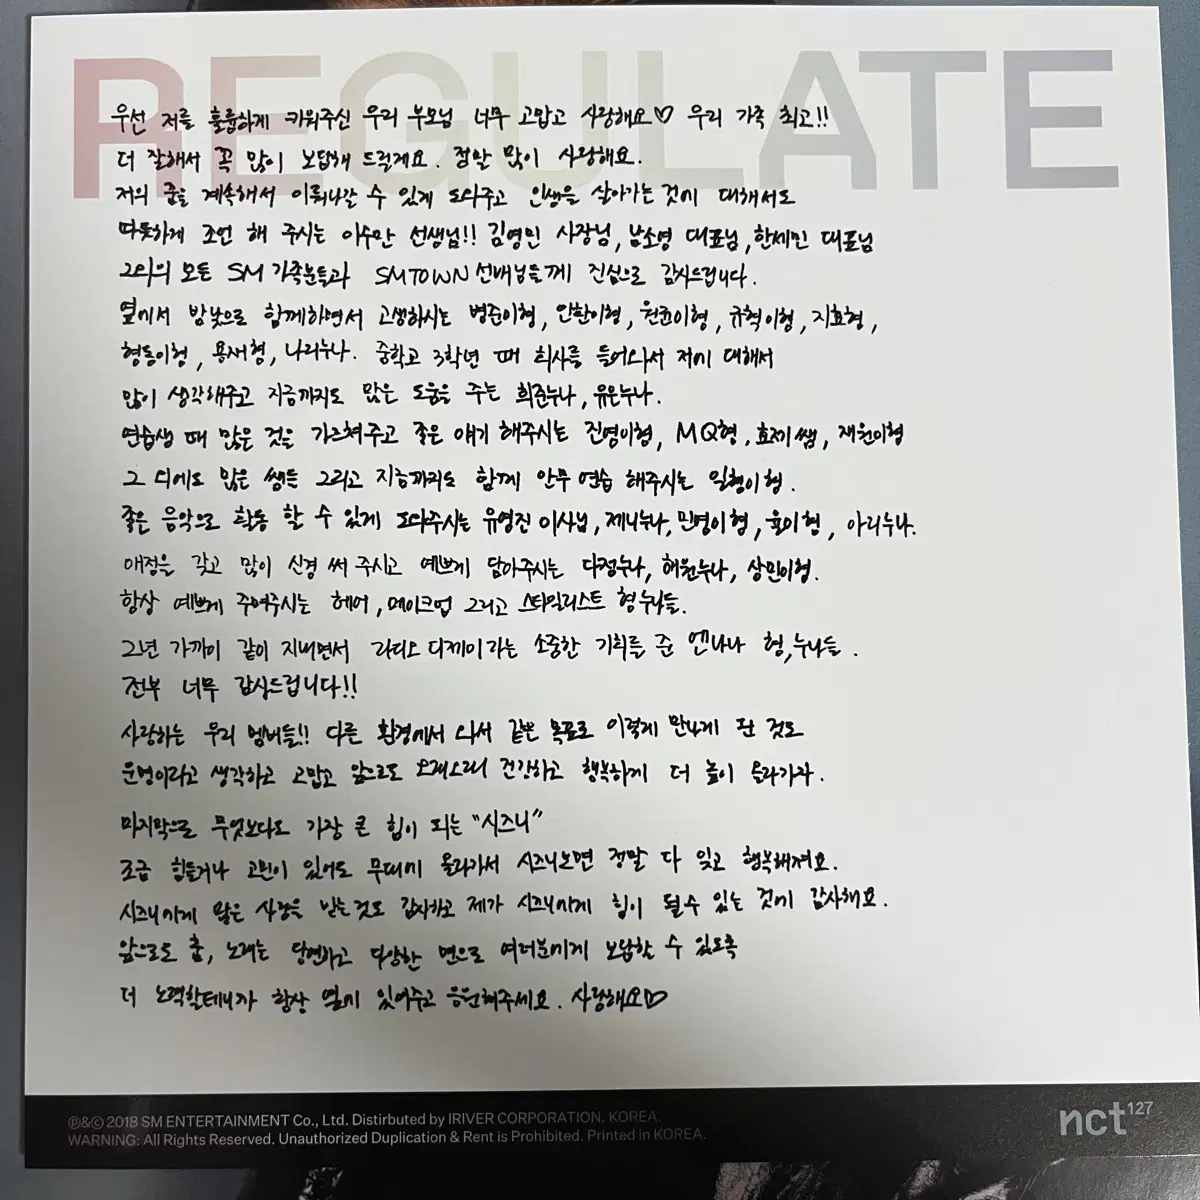 REGULATE
우선 저를 훌륭하게 키워주신 우리 부모님 너무 고맙고 사랑해요♡ 우리 가족 최고!!
더 잘해서 꼭 많이 보답해 드릴게요. 정말 많이 사랑해요.
저의 꿈을 계속해서 이뤄나갈 수 있게 도와주고 인생을 살아가는 것에 대해서도
따뜻하게 조언 해 주시는 이수만 선생님!! 김영민 사장님, 남소영 대표님, 한세민 대표님
그외의 모든 SM 가족분들과 SMTOWN 선배님들께 진심으로 감사드립니다.
옆에서 밤낮으로 함께하면서 고생하시는 병준이형, 안한이형, 원균이형, 규혁이형, 지효형,
형동이형, 용새형, 나리누나. 중학교 3학년 때 회사를 들어와서 저에 대해서
많이 생각해주고 지금까지도 많은 도움을 주는 희준누나, 유은누나.
연습생 때 많은 것을 가르쳐주고 좋은 얘기 해주시는 진영이형, MQ형, 효제쌤, 재원이형
그 외에도 많은 쌤들 그리고 지금까지도 함께 안무 연습 해주시는 일형이형.
좋은 음악으로 활동 할 수 있게 도와주시는 유영진 이사님, 제니누나, 민영이형, 율이형, 아리누나.
애정을 갖고 많이 신경 써 주시고 예쁘게 담아주시는 다정누나, 혜원누나, 상민이형.
항상 예쁘게 꾸며주시는 헤어, 메이크업 그리고 스타일리스트 형누나들.
2년 가까이 같이 지내면서 라디오 디제이라는 소중한 기회를 준 엔나나 형,누나들.
전부 너무 감사드립니다!!
사랑하는 우리 멤버들!! 다른 환경에서 와서 같은 목표로 이렇게 만나게 된 것도
운명이라고 생각하고 고맙고 앞으로도 오래오래 건강하고 행복하게 더 높이 올라가자.
마지막으로 무엇보다도 가장 큰 힘이 되는 "시즈니"
조금 힘들거나 고민이 있어도 무대에 올라가서 시즈니보면 정말 다 잊고 행복해져요.
시즈니에게 많은 사랑을 받는것도 감사하고 제가 시즈니에게 힘이 될수 있는 것에 감사해요.
앞으로도 춤, 노래는 당연하고 다양한 면으로 여러분에게 보답할 수 있도록
더 노력할테니까 항상 옆에 있어주고 응원해주세요. 사랑해요♡
℗&© 2018 SM ENTERTAINMENT Co., Ltd. Distirbuted by IRIVER CORPORATION. KOREA.
WARNING: All Rights Reserved. Unauthorized Duplication & Rent is Prohibited. Printed in KOREA.
nct127